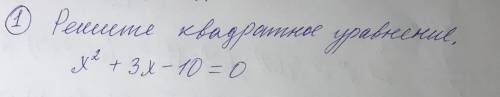 ① Решите квадратное уравнение.
x² + 3x - 10 = 0